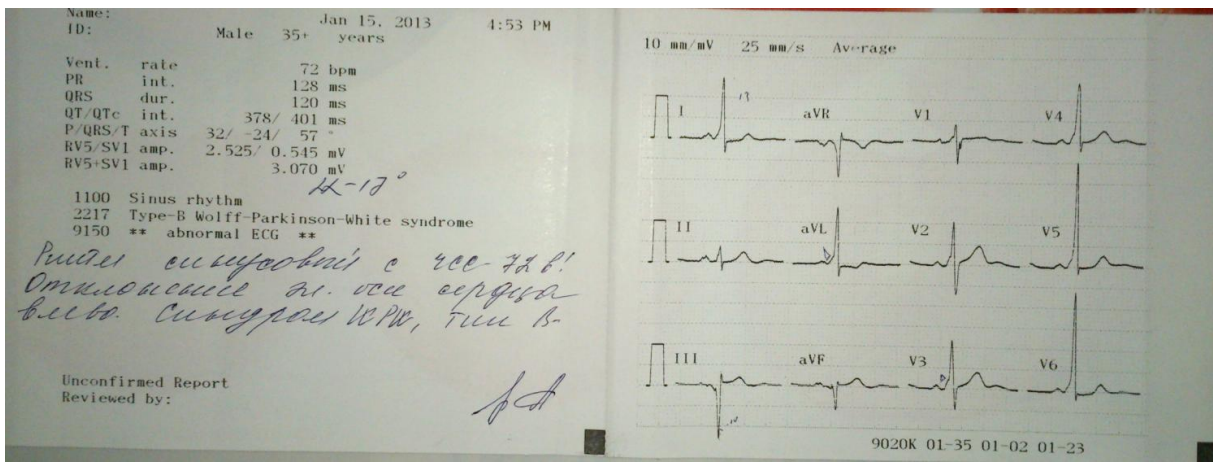 Name:
Jan 15, 2013 4:53 PM
ID: Male 35+ years
Vent. rate 72 bpm
PR int. 128 ms
QRS dur. 120 ms
QT/QTc int. 378/ 401 ms
P/QRS/T axis 32/ -24/ 57 °
RV5/SV1 amp. 2.525/ 0.545 mV
RV5+SV1 amp. 3.070 mV
1100 Sinus rhythm
2217 Type-B Wolff-Parkinson-White syndrome
9150 ** abnormal ECG **
Ритм синусовый с ЧСС-72 в!
Отклонение эл. оси сердца
влево. Синдром
тип В-
Unconfirmed Report
Reviewed by:
10 mm/mV 25 mm/s Average
I aVR V1 V4
II aVL V2 V5
III aVF V3 V6
9020K 01-35 01-02 01-23